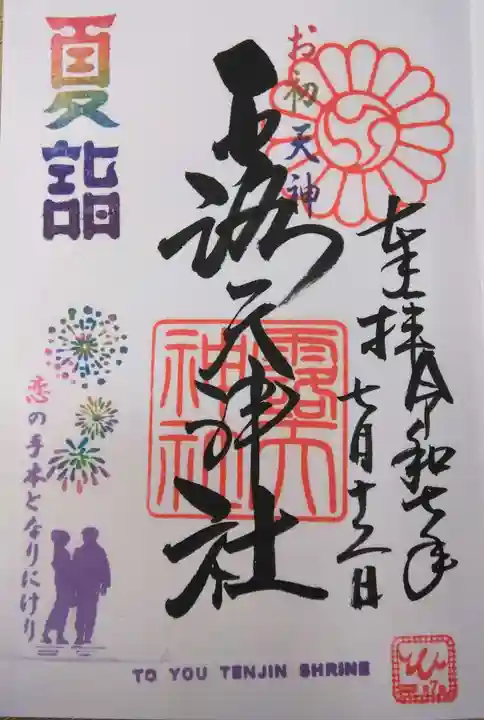 奉拝 令和七年
七月十六日
お初天神
露天神社
露天
神社
夏詣
恋の手本となりにけり
TO YOU TENJIN SHRINE